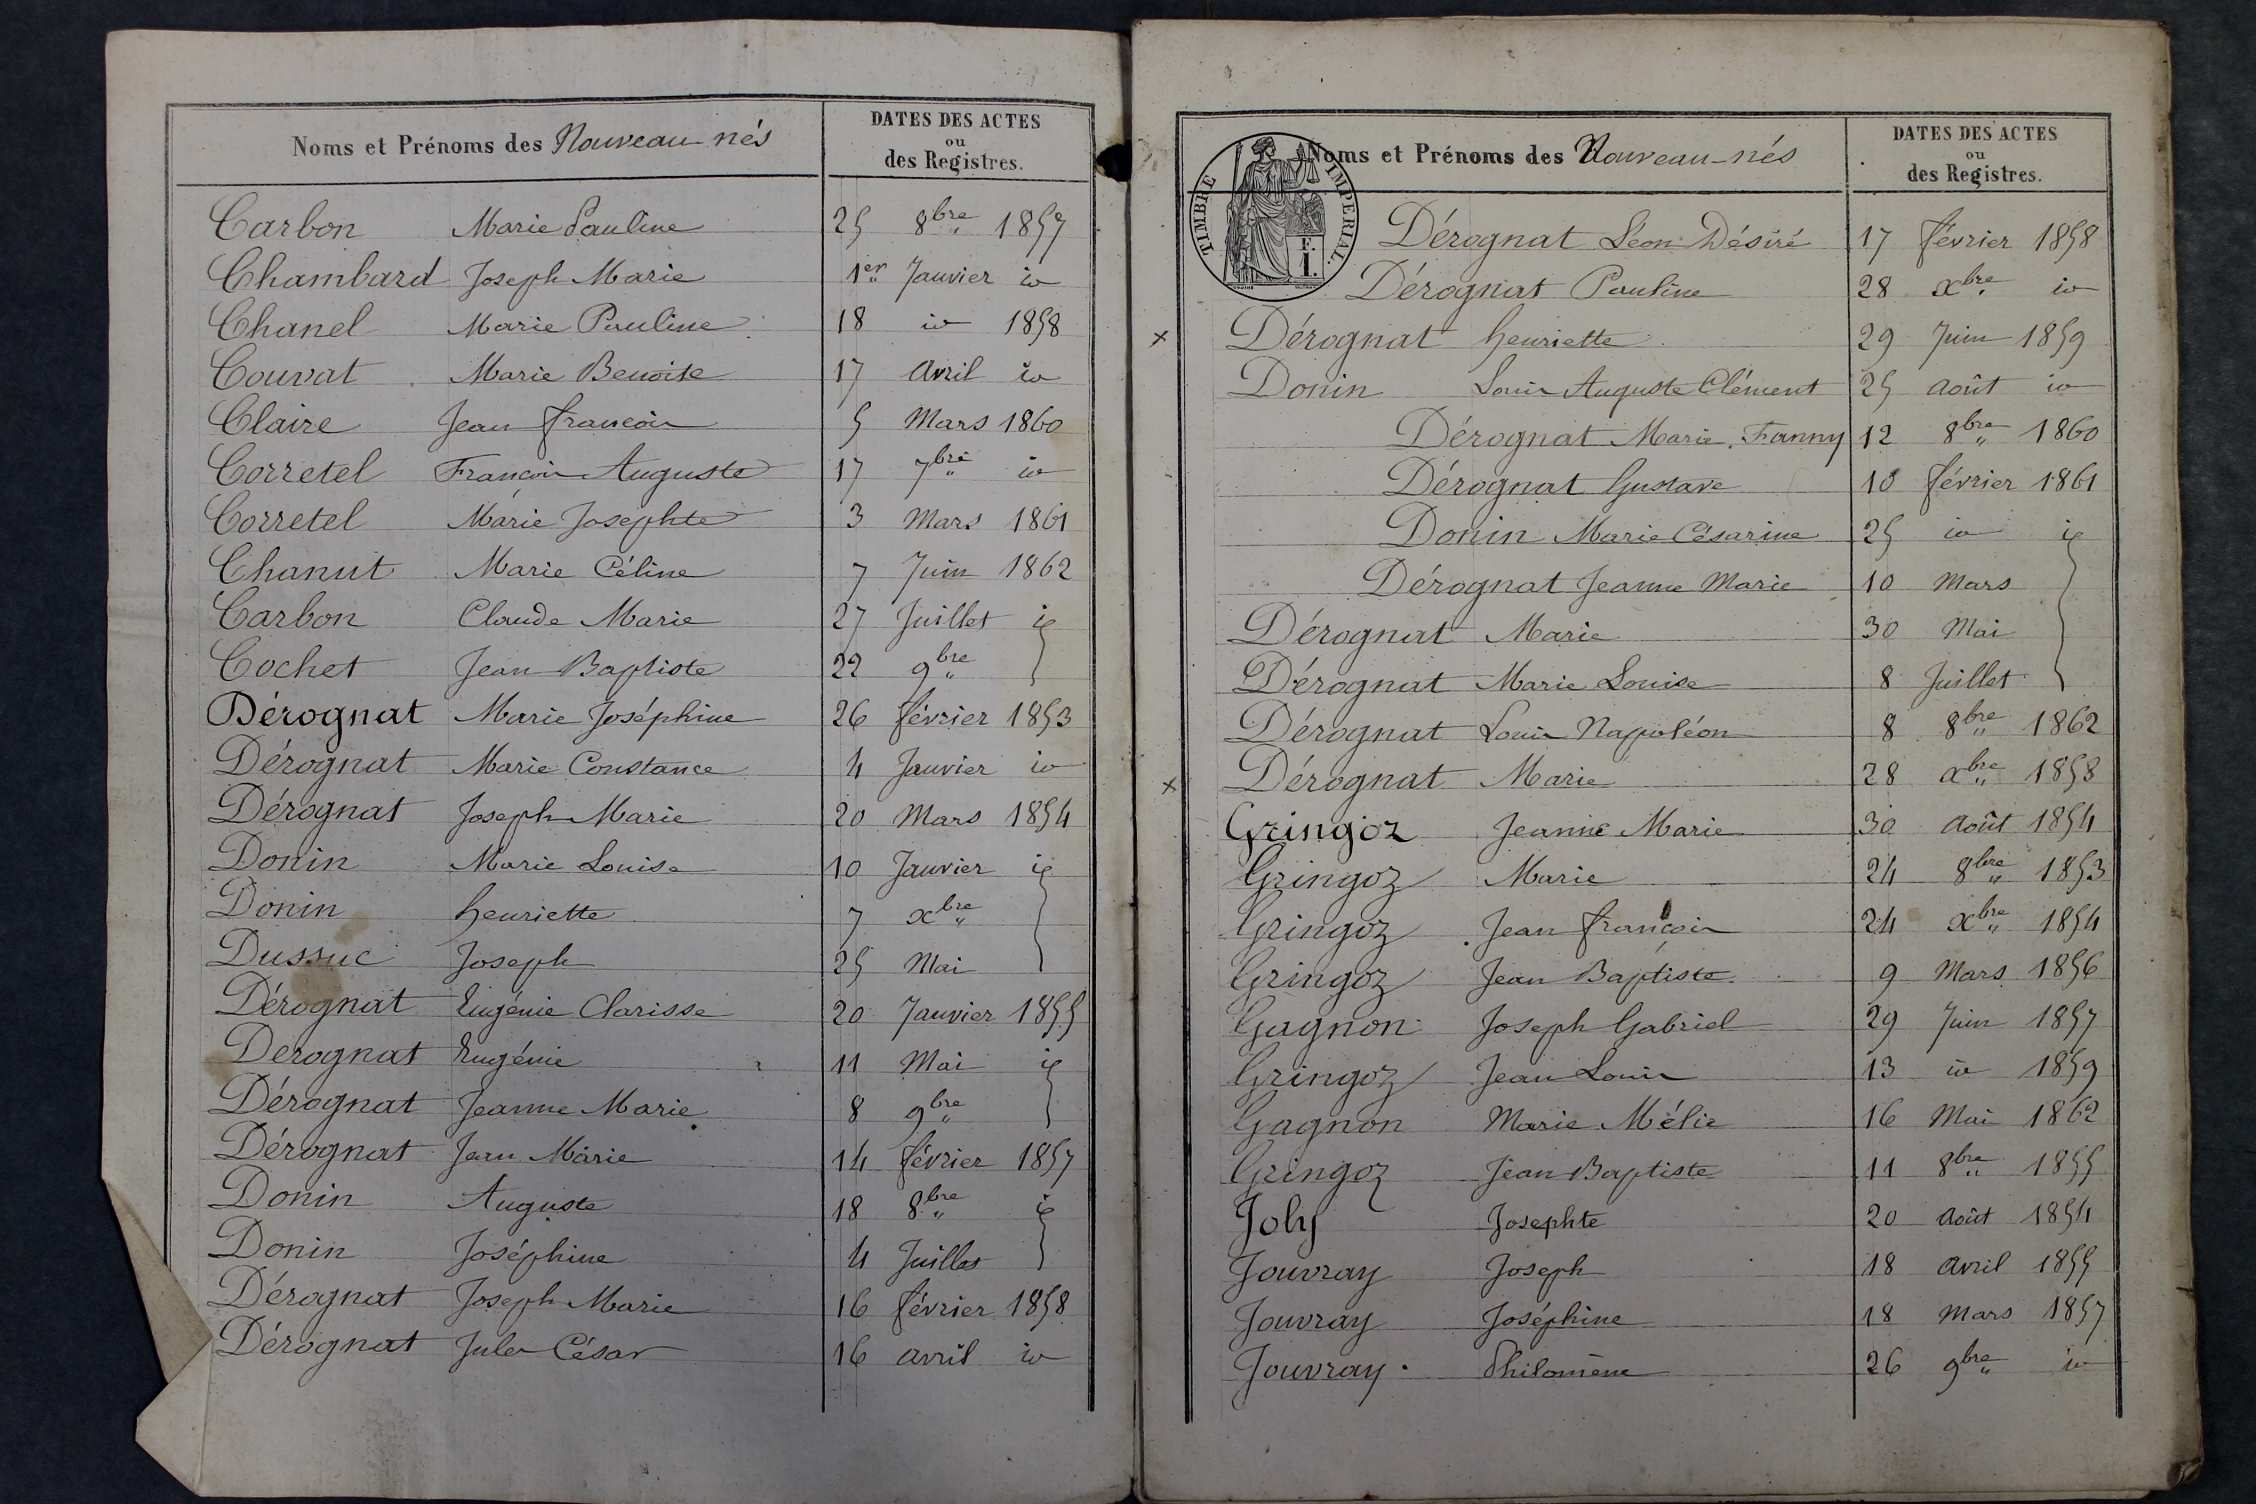 Noms et Prénoms des Nouveau-nés
DATES DES ACTES
ou
des Registres.
Carbon Marie Pauline 25 8bre 1857
Chambard Joseph Marie 1er Janvier id
Chanel Marie Pauline 18 id 1858
Couvat Marie Benoite 17 avril id
Claire Jean françois 5 Mars 1860
Corretel François Auguste 17 7bre id
Corretel Marie Josephte 3 Mars 1861
Chanut Marie Céline 7 Juin 1862
Carbon Claude Marie 27 Juillet id
Cochet Jean Baptiste 22 9bre
Dérognat Marie Joséphine 26 février 1853
Dérognat Marie Constance 4 Janvier id
Dérognat Joseph Marie 20 Mars 1854
Donin Marie Louise 10 Janvier id
Donin henriette 7 xbre
Dussuc Joseph 25 Mai
Dérognat Eugénie Clarisse 20 Janvier 1855
Derognat Eugénie 11 Mai id
Dérognat Jeanne Marie 8 9bre
Dérognat Jean Marie 14 février 1857
Donin Auguste 18 8bre id
Donin Joséphine 4 Juillet
Dérognat Joseph Marie 16 février 1858
Dérognat Jules César 16 avril id
TIMBRE IMPERIAL.
1 F.
Noms et Prénoms des Nouveau-nés
DATES DES ACTES
ou
des Registres.
Dérognat Léon Désiré 17 février 1858
Dérognat Pauline 28 xbre id
x Dérognat henriette 29 Juin 1859
Donin Louis Auguste Clément 25 août id
Dérognat Marie Fanny 12 8bre 1860
Dérognat Gustave 10 février 1861
Donin Marie Césarine 25 id id
Dérognat Jeanne Marie 10 Mars
Dérognat Marie 30 Mai
Dérognat Marie Louise 8 Juillet
Dérognat Louis Napoléon 8 8bre 1862
x Dérognat Marie 28 xbre 1858
Gringoz Jeanne Marie 30 août 1854
Gringoz Marie 24 8bre 1853
Gringoz Jean françois 24 xbre 1854
Gringoz Jean Baptiste 9 Mars 1856
Gagnon Joseph Gabriel 29 Juin 1857
Gringoz Jean Louis 13 id 1859
Gagnon Marie Mélie 16 Mai 1862
Gringoz Jean Baptiste 11 8bre 1855
Joly Josephte 20 août 1854
Jouvray Joseph 18 avril 1855
Jouvray Joséphine 18 Mars 1857
Jouvray Philomène 26 9bre id